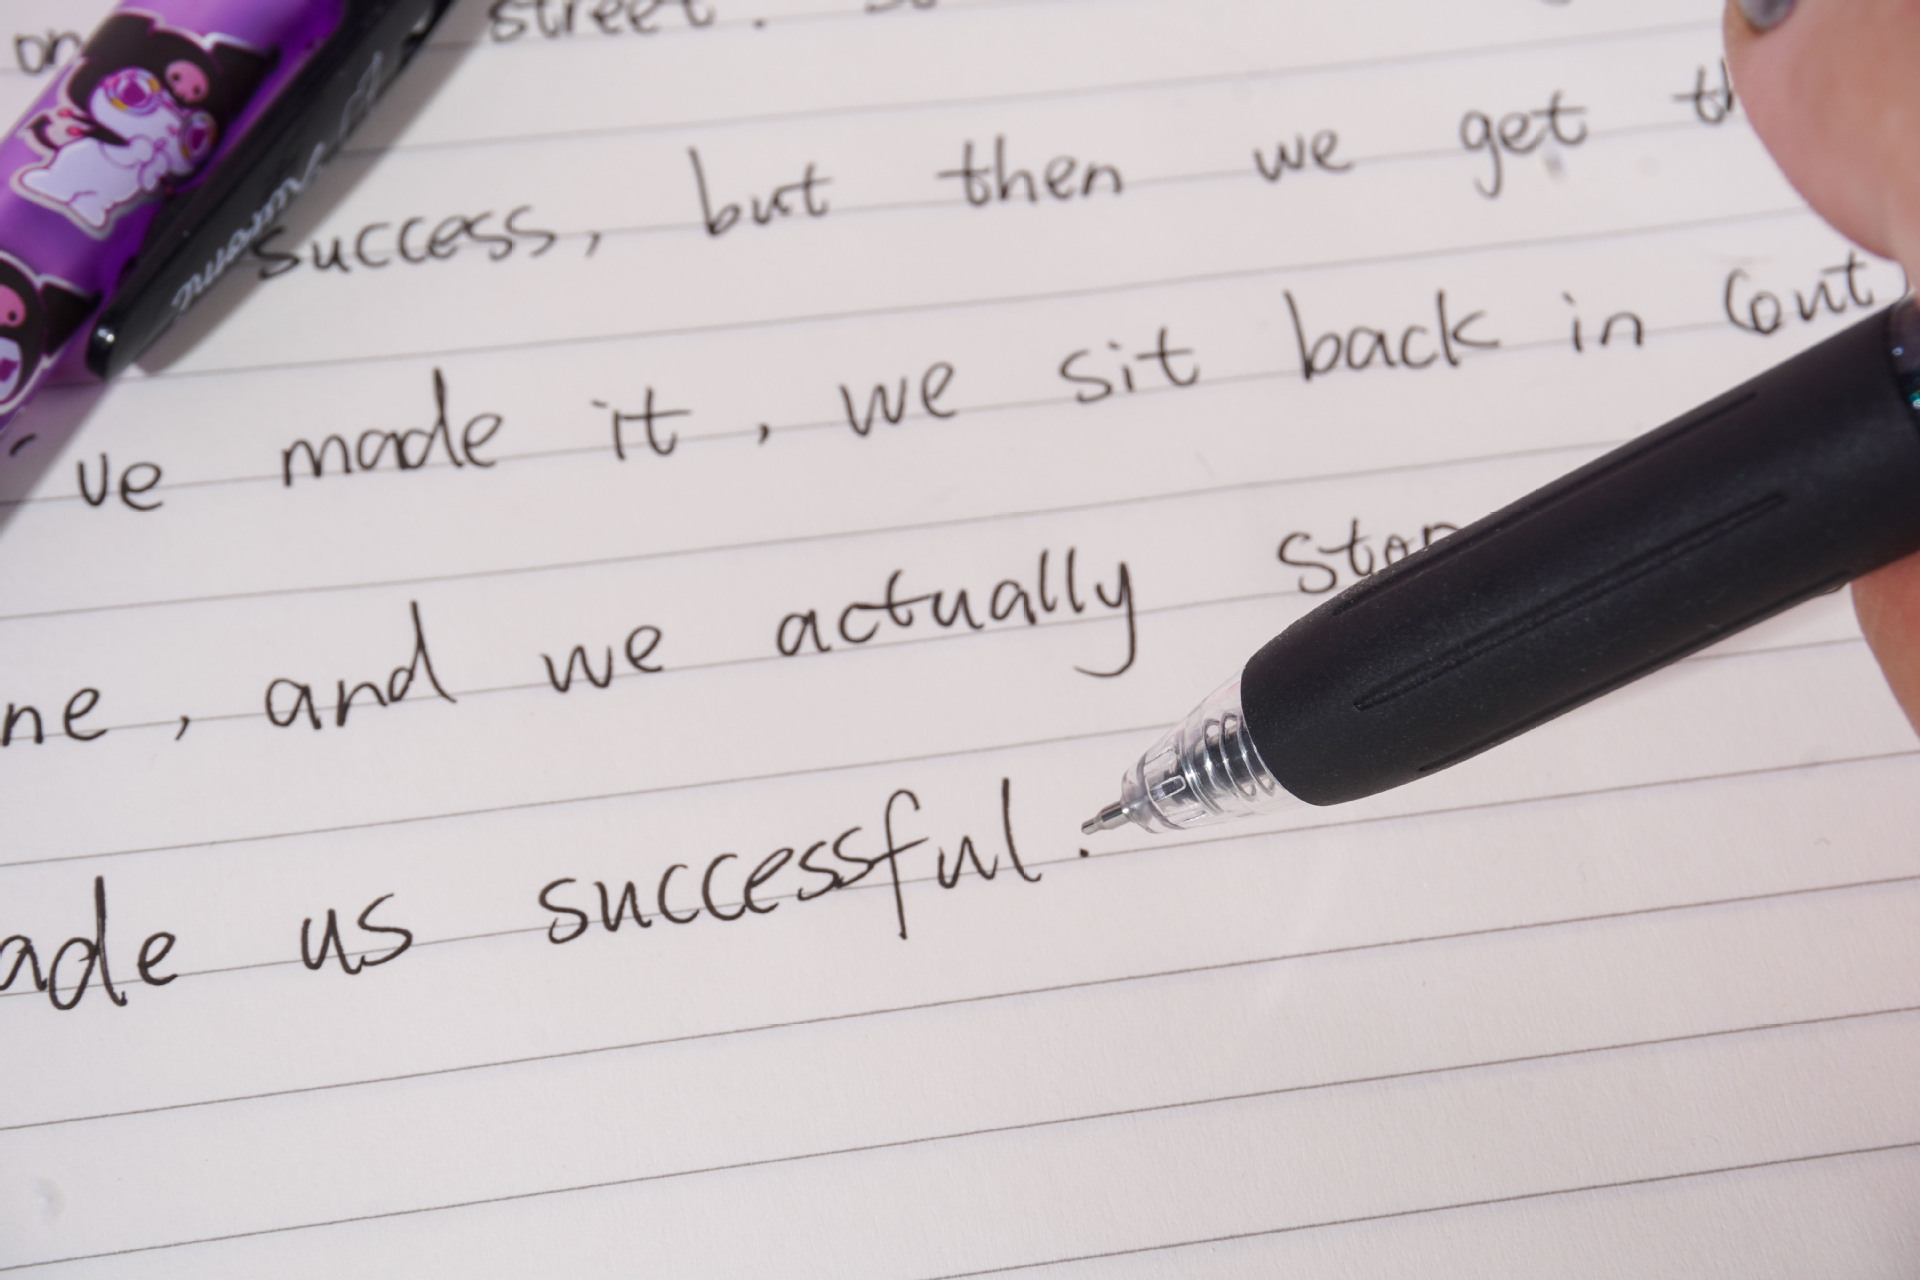 on street.
success, but then we get
've made it, we sit back in
ne, and we actually
ade us successful.
Kuromi